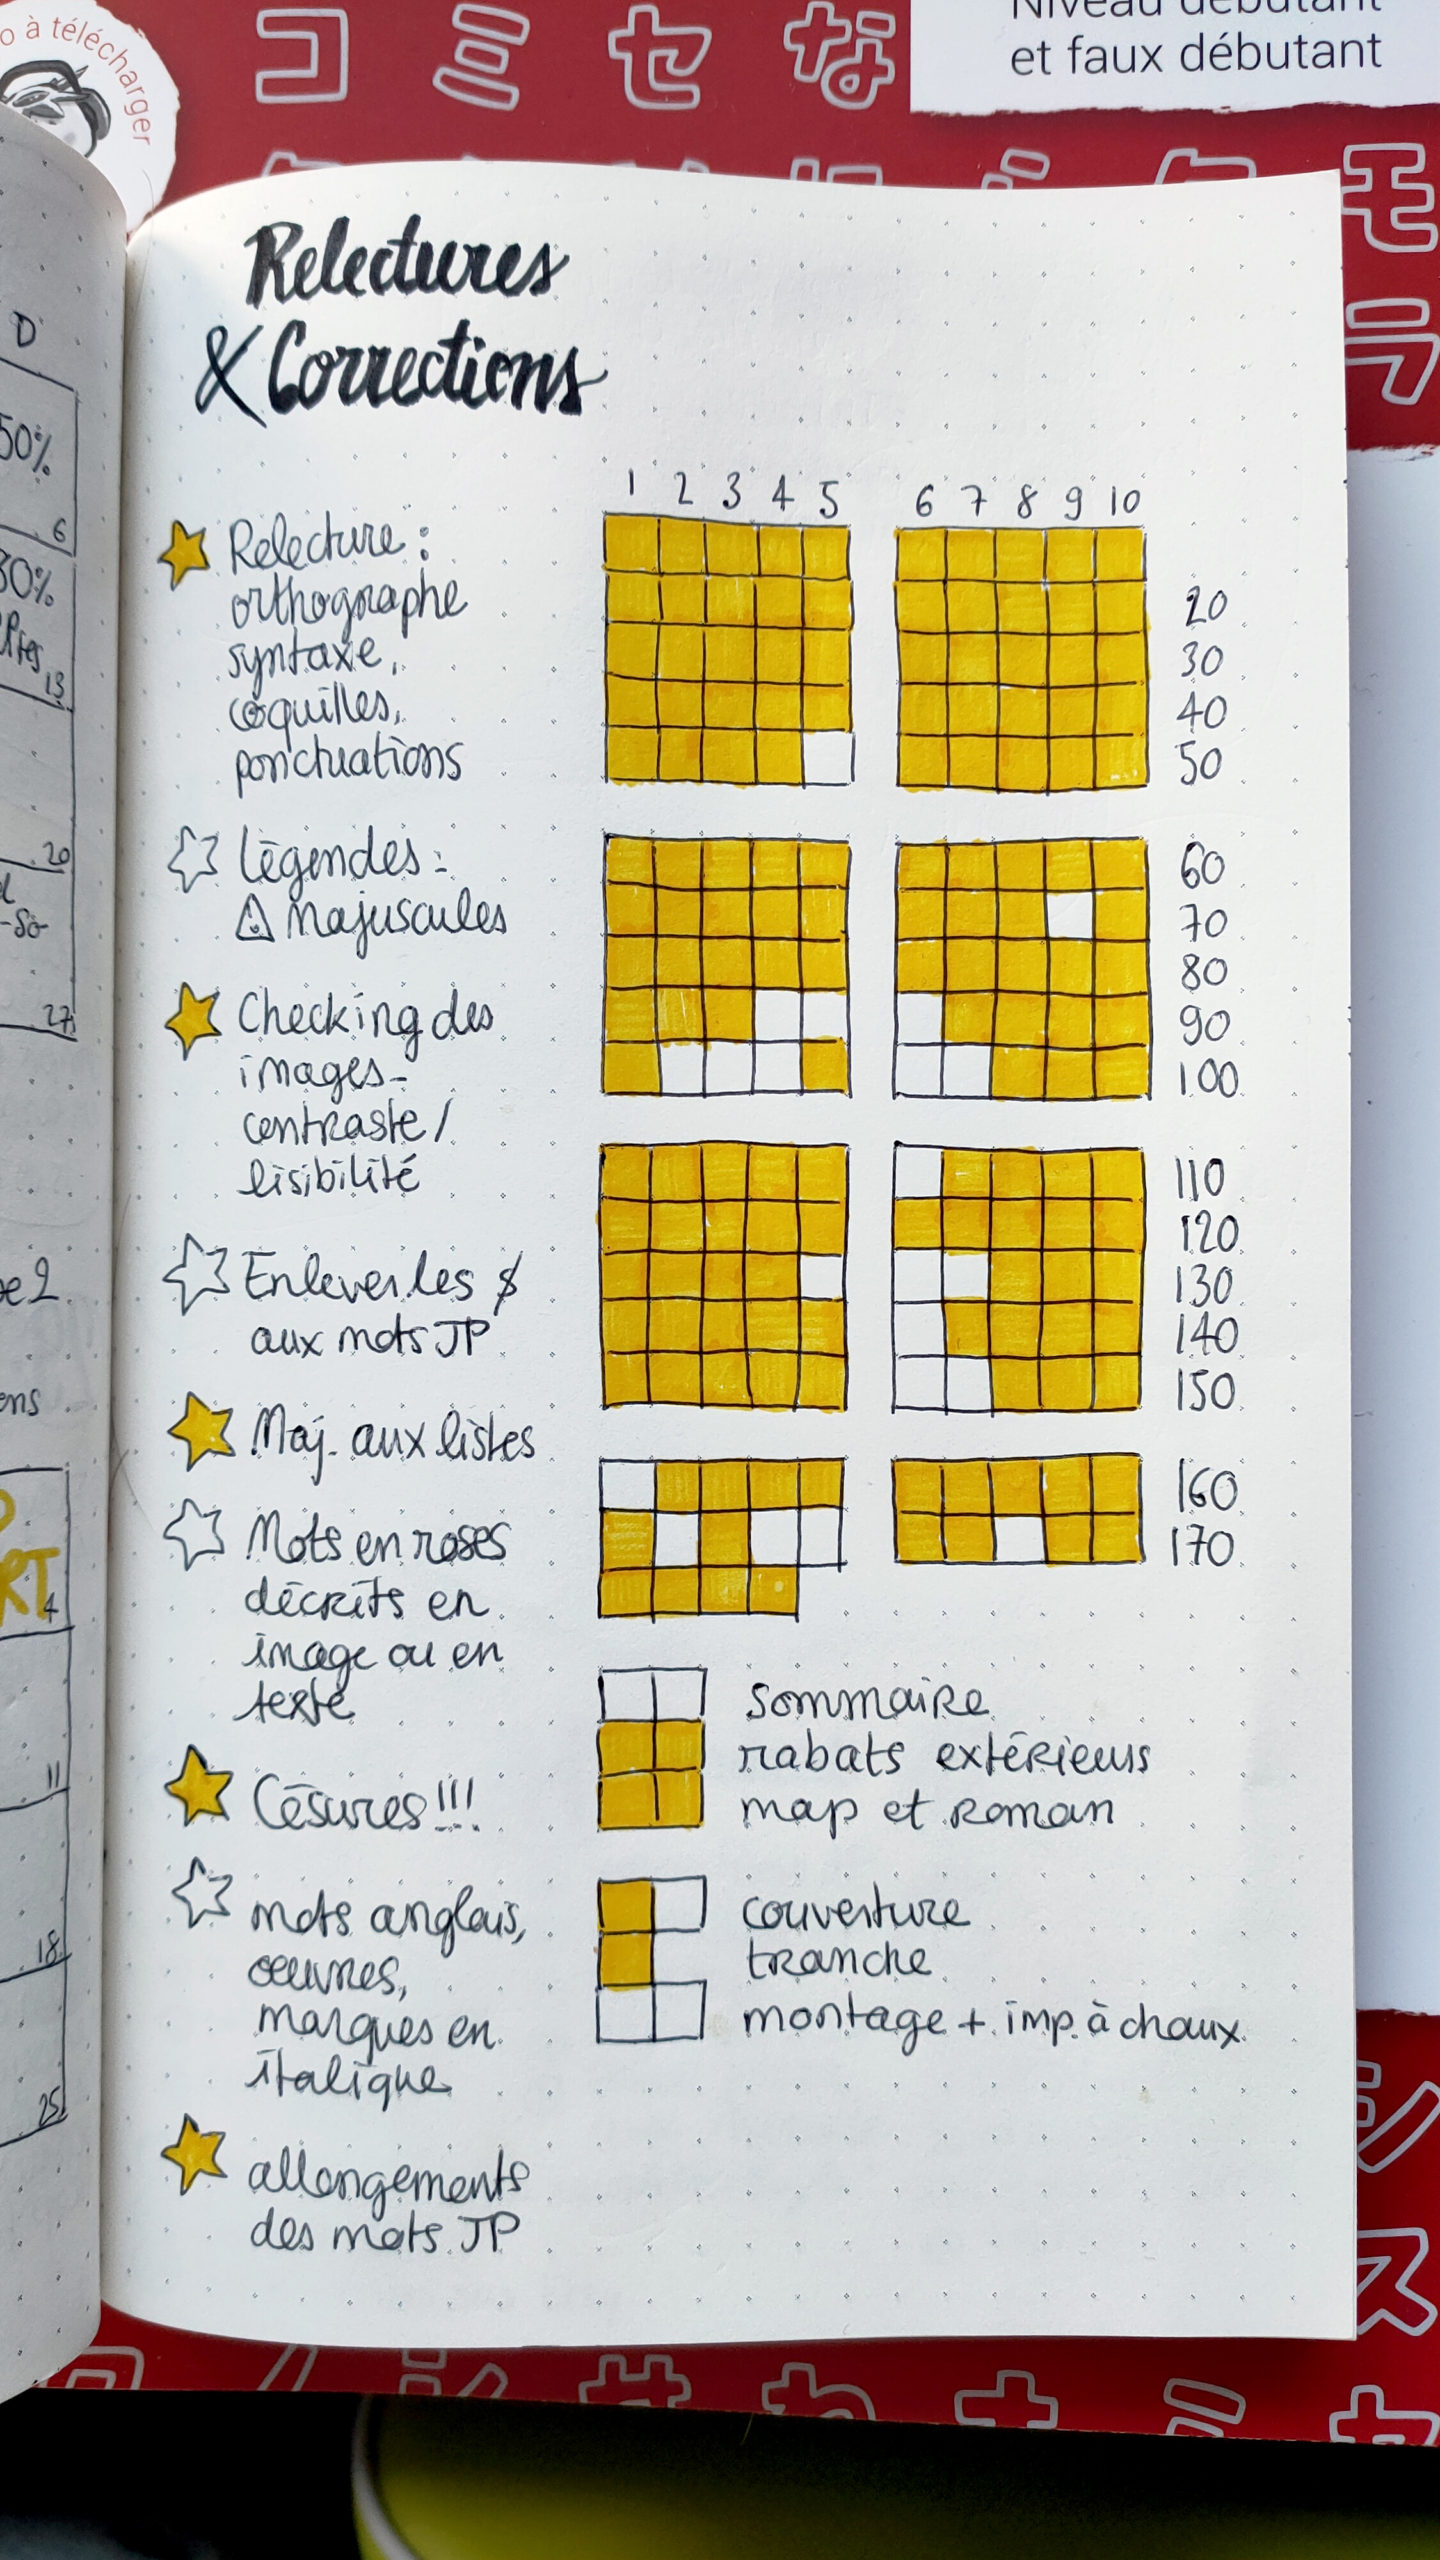 o à télécharger
コミセな
Niveau débutant
et faux débutant
モ
ラ
D
50%
6
30%
13
20
-so-
27
e2
ens
RT
4
11
18
25
Relectures
& Corrections
1 2 3 4 5 6 7 8 9 10
Relecture :
orthographe
syntaxe,
coquilles,
ponctuations
20
30
40
50
Légendes :
⚠ Majuscules
60
70
80
90
100
Checking des
images -
contraste /
lisibilité
110
120
130
140
150
Enlever les $
aux mots JP
Maj. aux listes
160
170
Mots en roses
décrits en
image ou en
texte
sommaire
rabats extérieurs
map et roman
Césures !!!
mots anglais,
œuvres,
marques en
italique
couverture
tranche
montage + imp. à chaux
allongements
des mots JP
ス